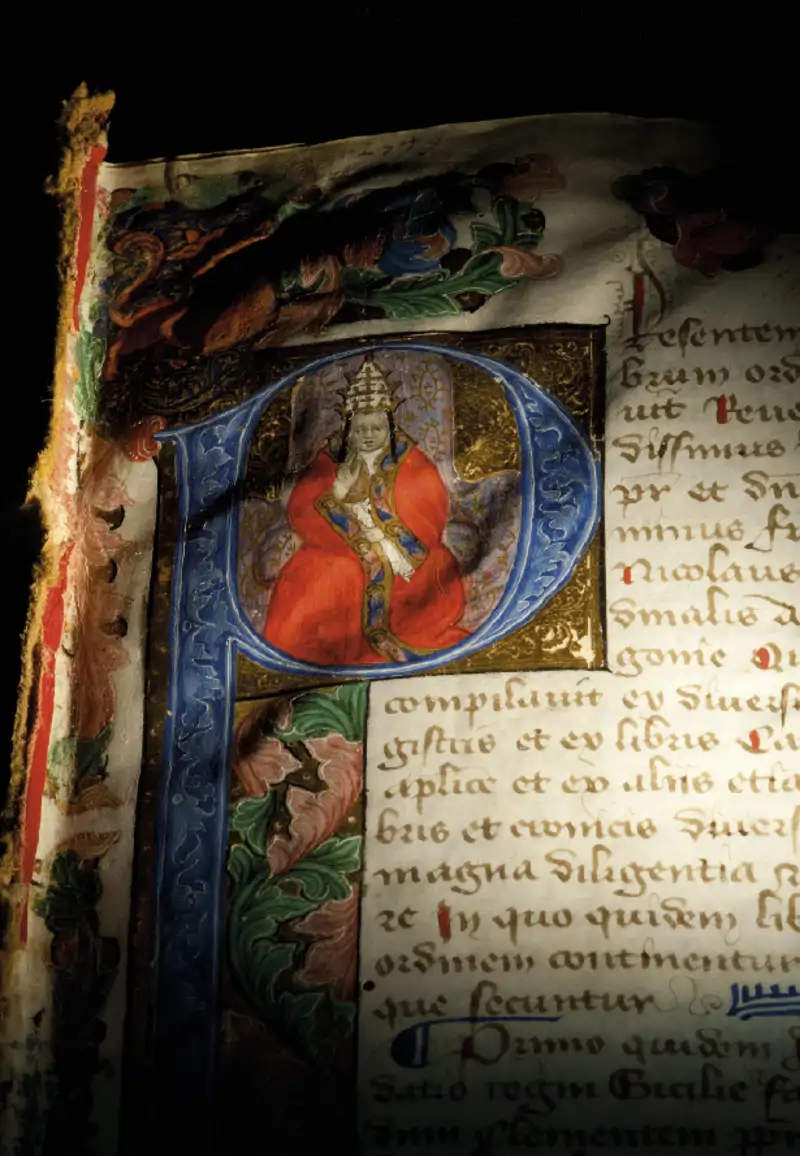 Presentem
brum ord
uit Reue
dissimus
pr et dn
minus fr
Nicolaus
dinalis A
gonie Qui
compilauit ex diuers
gistris et ex libris Ca
aplice et ex alijs etia
bris et cronicis diuers
magna diligentia
re In quo quidem lib
ordinem continentur
que secuntur
Primo quidem
datio regni Sicilie fa
dnm Clementem ppm